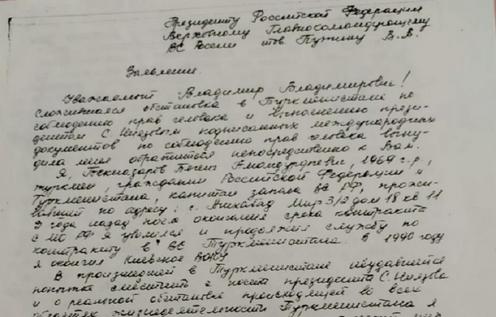 Президенту Российской Федерации
Верховному Главнокомандующему
ВС России тов Путину В.В.
Заявление.
Уважаемый Владимир Владимирович!
Сложившаяся обстановка в Туркменистане по
соблюдению прав человека и выполнению прези-
дентом С. Ниязовым подписанных международных
документов по соблюдению прав человека выну-
дила меня обратиться непосредственно к Вам.
Я, 1969 г.р.,
туркмен, гражданин Российской Федерации и
Туркменистана, капитан запаса ВС РФ, прожи-
вавший по адресу: г. Мир 3/2 дом 18 кв 11
3 года назад после окончания срока контракта
с МО РФ я уволился и продолжил службу по
контракту в ВС Туркменистана. В 1990 году
я окончил Киевское
В произошедшей в Туркменистане неудавшейся
попытке сместить с поста президента С. Ниязова
и о реальной обстановке происходящей во всех
областях жизнедеятельности Туркменистана я